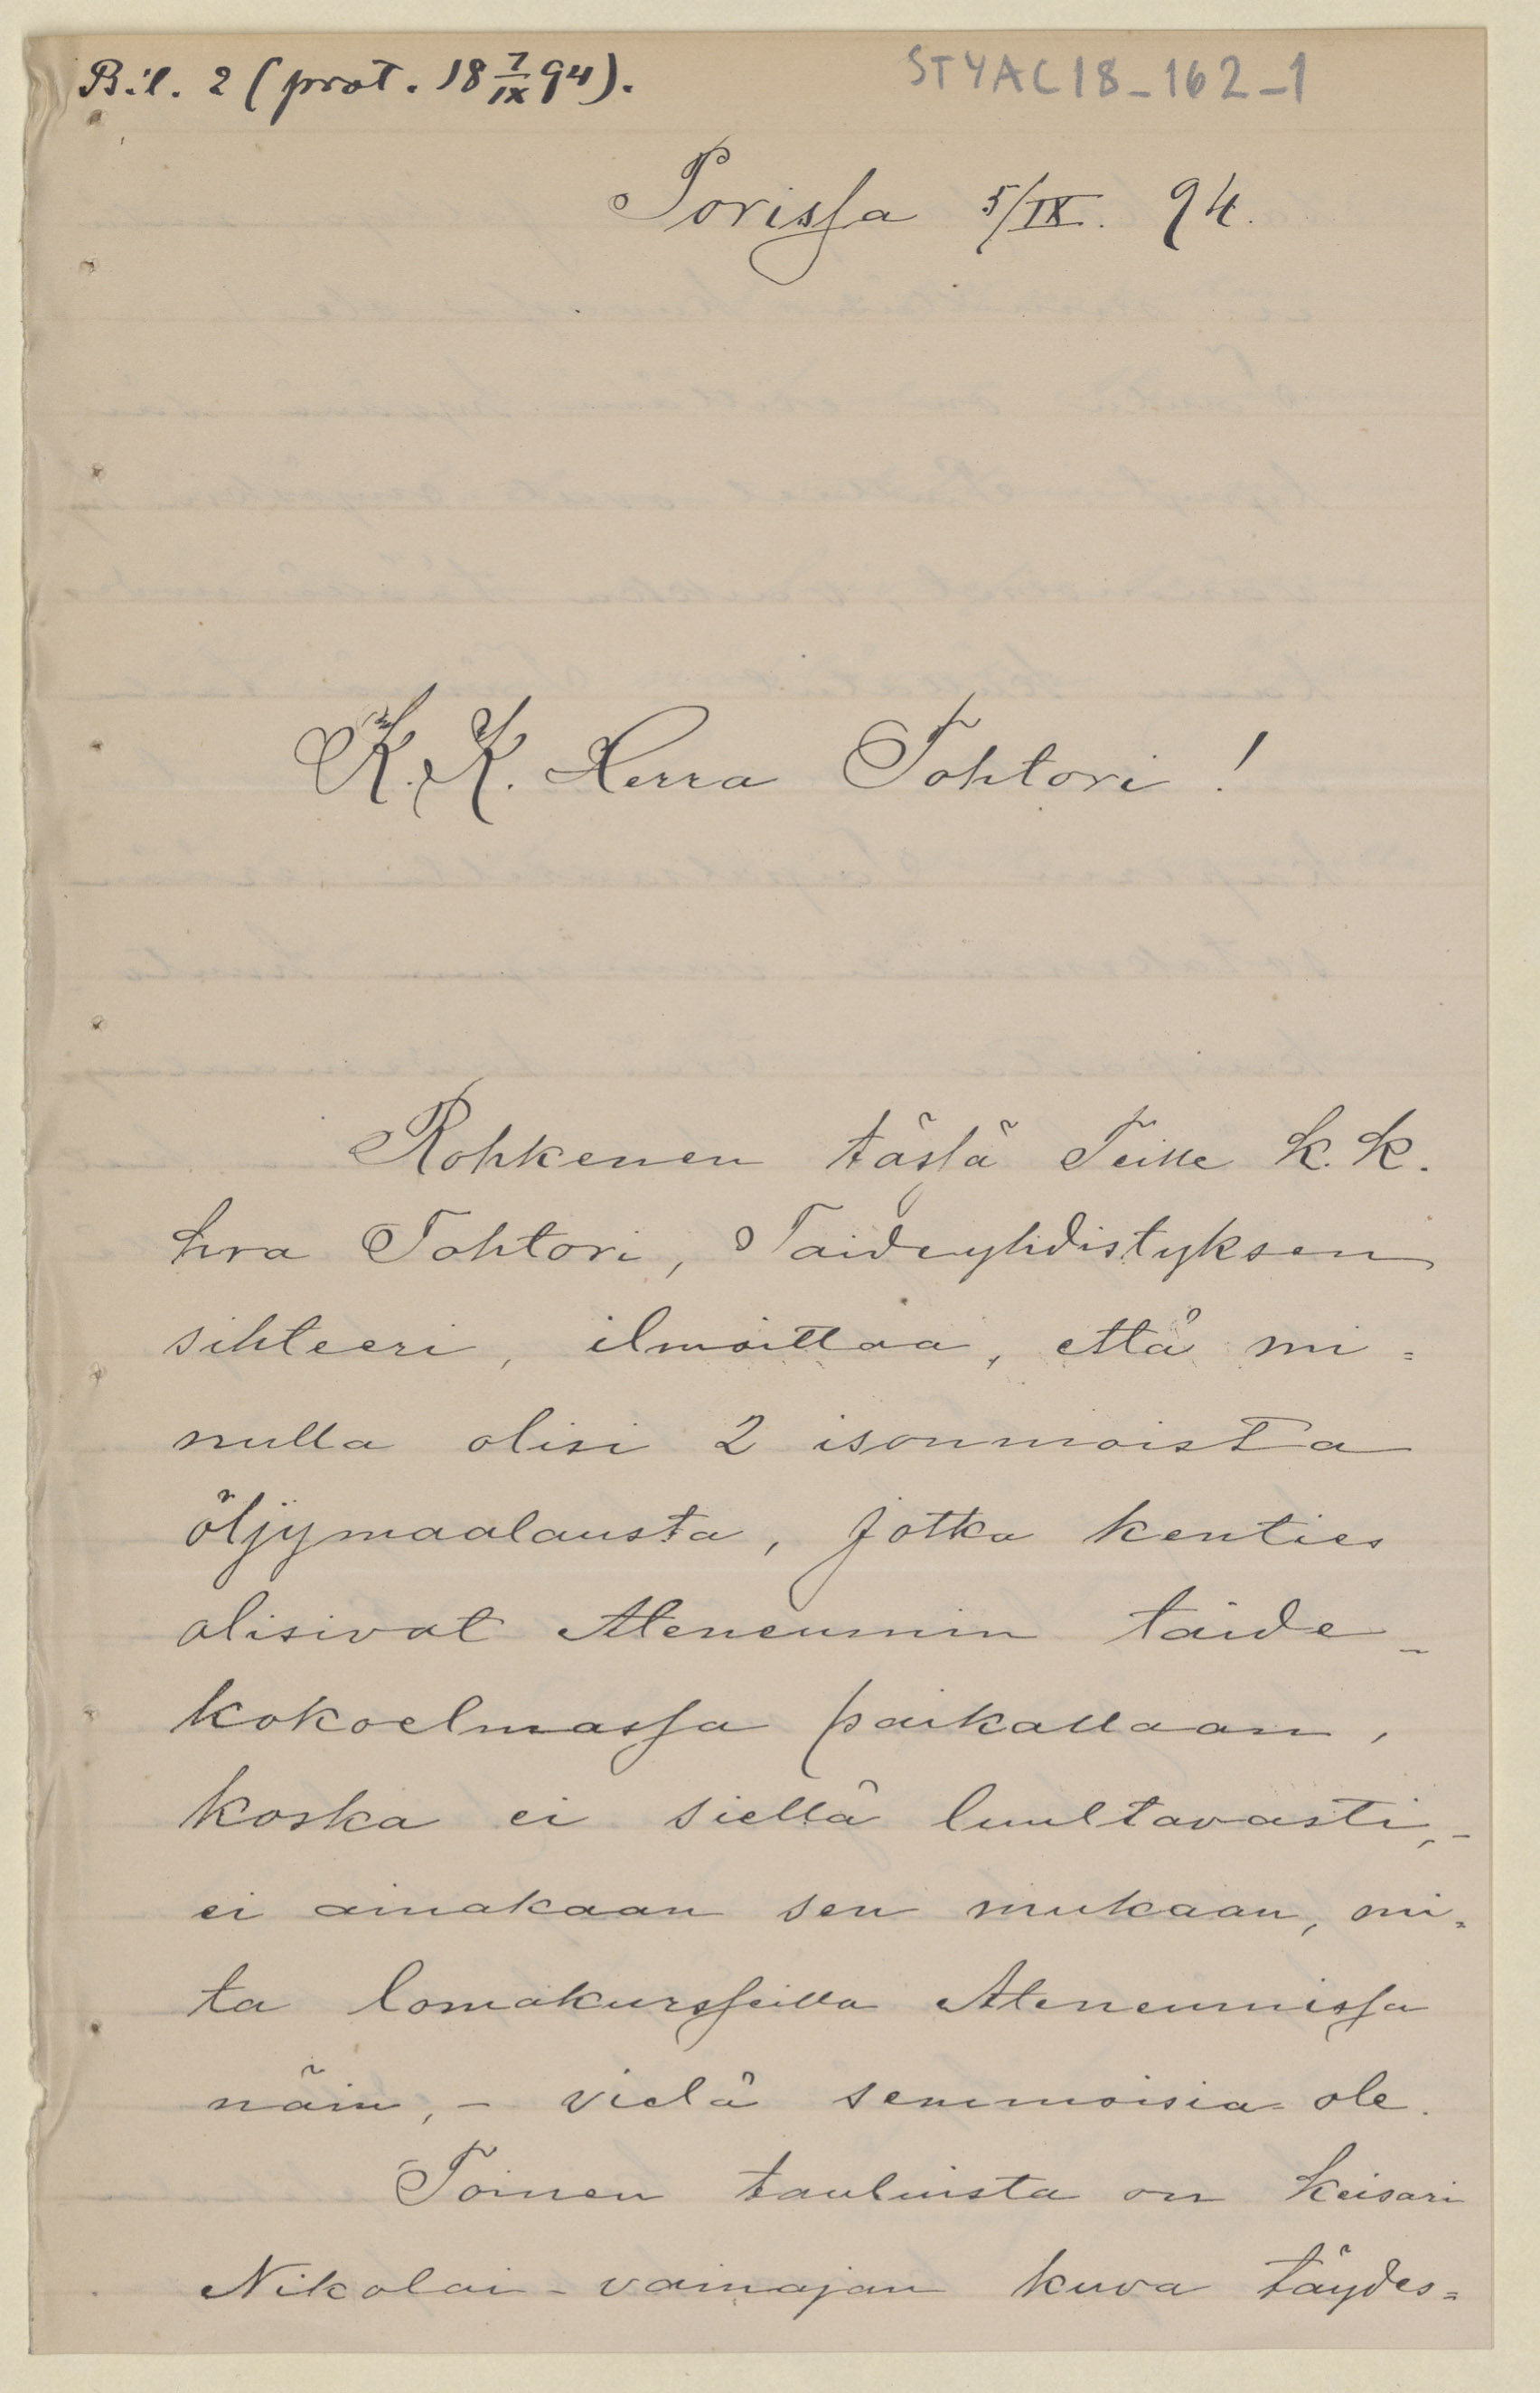 Bil. 2 (prot. 18 7/IX 94).
STYAC18_162_1
Porissa 5/IX. 94.
K. K. Herra Tohtori!
Rohkenen tästä Teille K. K.
hra Tohtori, Taideyhdistyksen
sihteeri, ilmoittaa, että mi=
nulla olisi 2 isonmoista
öljymaalausta, jotka kenties
olisivat Ateneumin taide-
kokoelmassa paikallaan,
koska ei siellä luultavasti,-
ei ainakaan sen mukaan, mi=
ta lomakursseilla Ateneumissa
näin,- vielä semmoisia ole.
Toinen tauluista on Keisari
Nikolai-vainajan kuva täydes=